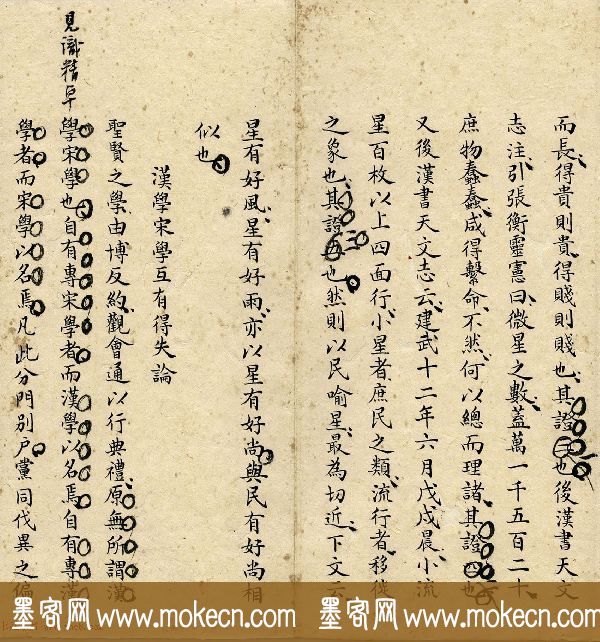 而長得貴則貴得賤則賤也其證三也後漢書天文
志注引張衡靈憲曰微星之數蓋萬一千五百二十
庶物蠢蠢咸得繫命不然何以總而理諸其證四也
又後漢書天文志云建武十二年六月戊戌晨小流
星百枚以上四面行小星者庶民之類流行者移徙
之象也其證五也然則以民喻星最為切近下文云
星有好風星有好雨亦以星有好尚與民有好尚相
似也
漢學宋學互有得失論
聖賢之學由博反約觀會通以行典禮原無所謂漢
學宋學也自有專宋學者而漢學以名焉自有專漢
學者而宋學以名焉凡此分門別戶黨同伐異之偏
見識精卓
墨客网 www.mokecn.com 墨客网 www.mokecn.com